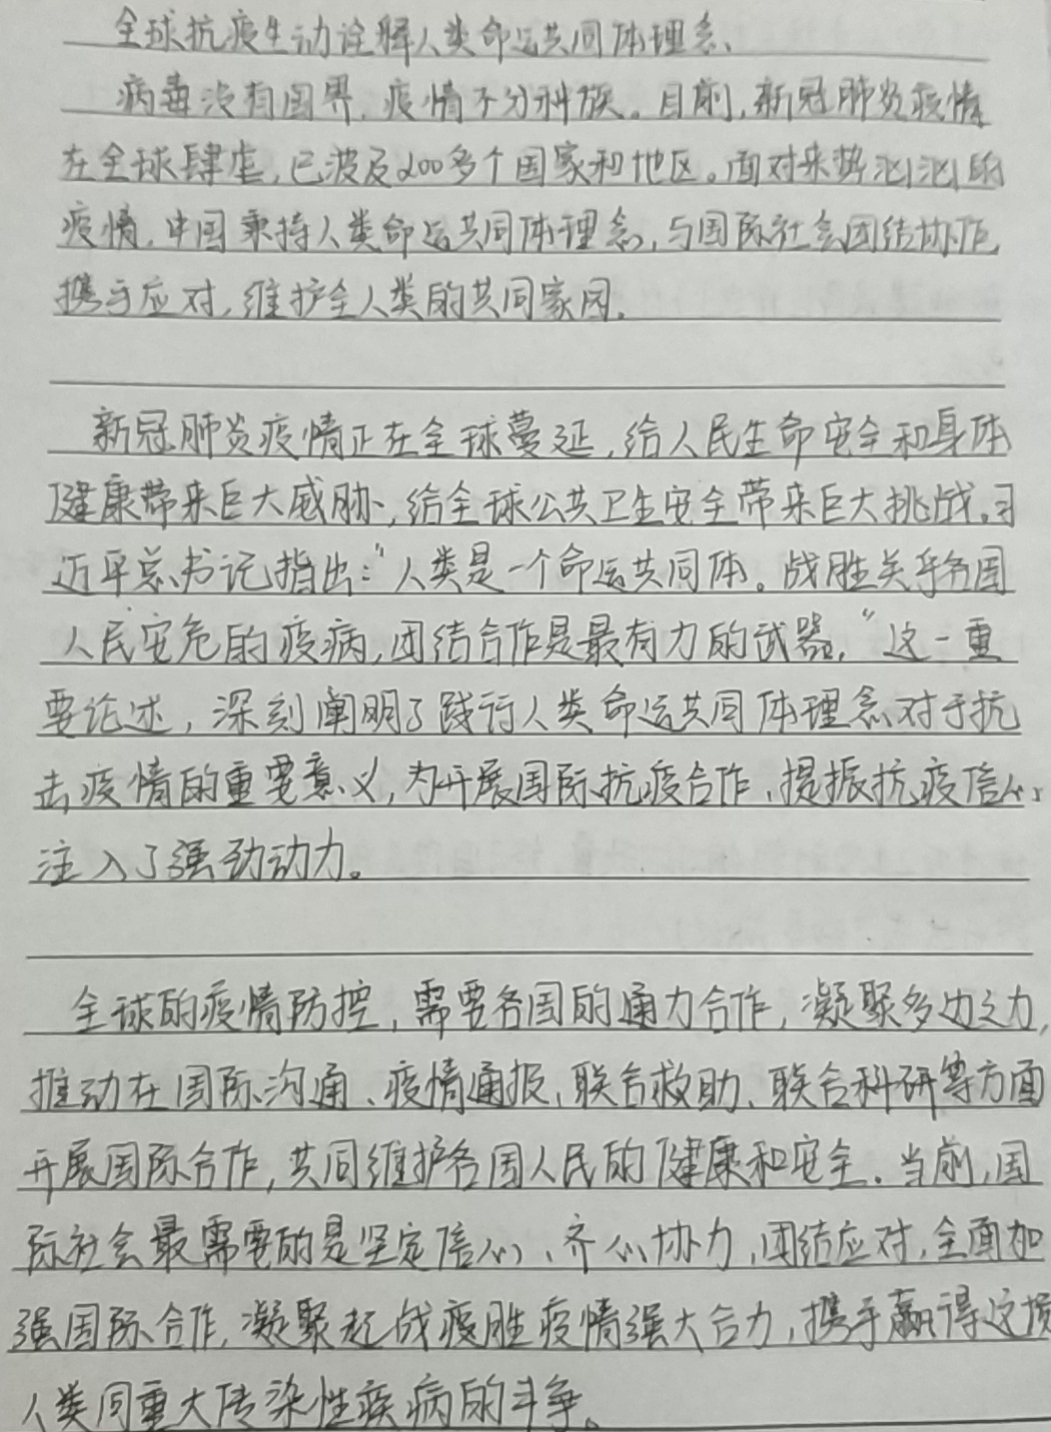 全球抗疫生动诠释人类命运共同体理念、
病毒没有国界,疫情不分种族。目前,新冠肺炎疫情
在全球肆虐,已波及200多个国家和地区。面对来势汹汹的
疫情,中国秉持人类命运共同体理念,与国际社会团结协作,
携手应对,维护全人类的共同家园.
新冠肺炎疫情正在全球蔓延,给人民生命安全和身体
健康带来巨大威胁,给全球公共卫生安全带来巨大挑战。习
近平总书记指出:“人类是一个命运共同体。战胜关乎各国
人民安危的疫病,团结合作是最有力的武器.”这一重
要论述,深刻阐明了践行人类命运共同体理念对于抗
击疫情的重要意义,为开展国际抗疫合作、提振抗疫信心,
注入了强劲动力。
全球的疫情防控,需要各国的通力合作,凝聚多边之力,
推动在国际沟通、疫情通报,联合救助、联合科研等方面
开展国际合作,共同维护各国人民的健康和安全.当前,国
际社会最需要的是坚定信心、齐心协力,团结应对,全面加
强国际合作,凝聚起战疫胜疫情强大合力,携手赢得这场
人类同重大传染性疾病的斗争。